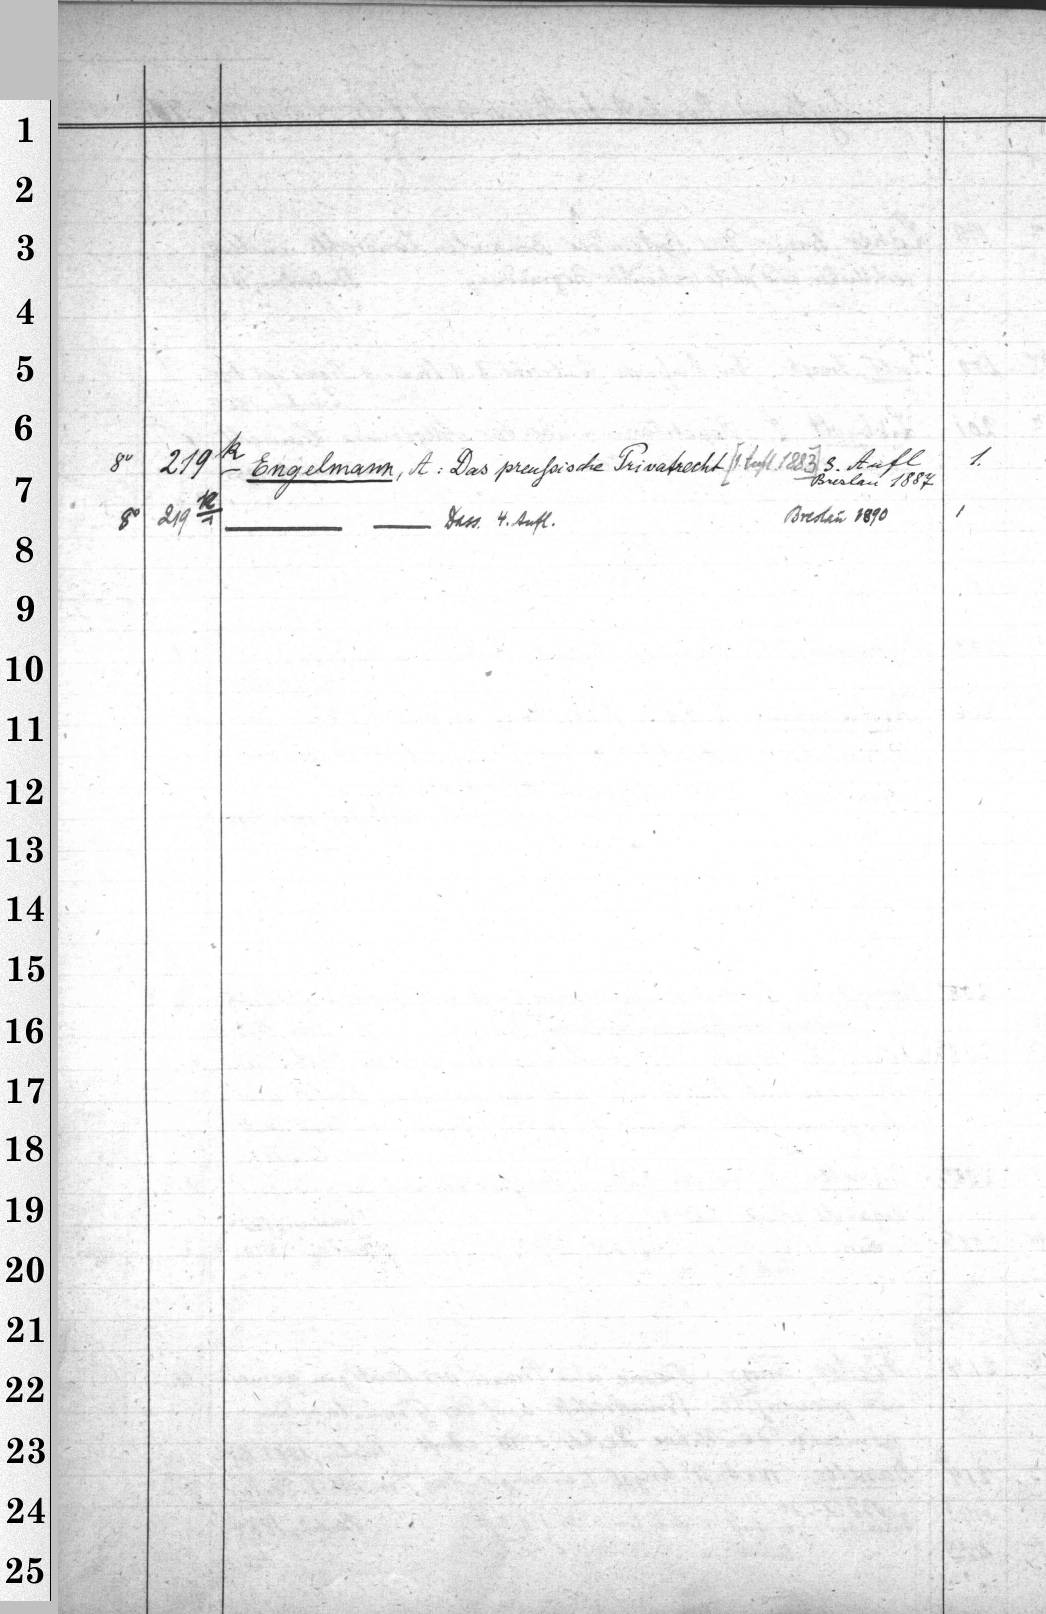 1
2
3
4
5
6
8° 219 k Engelmann, A: Das preußische Privatrecht [1. Aufl. 1883] 3. Aufl
7
Breslau 1887
1.
8° 219 k/1 Dass. 4. Aufl. Breslau 1890 1
8
9
10
11
12
13
14
15
16
17
18
19
20
21
22
23
24
25